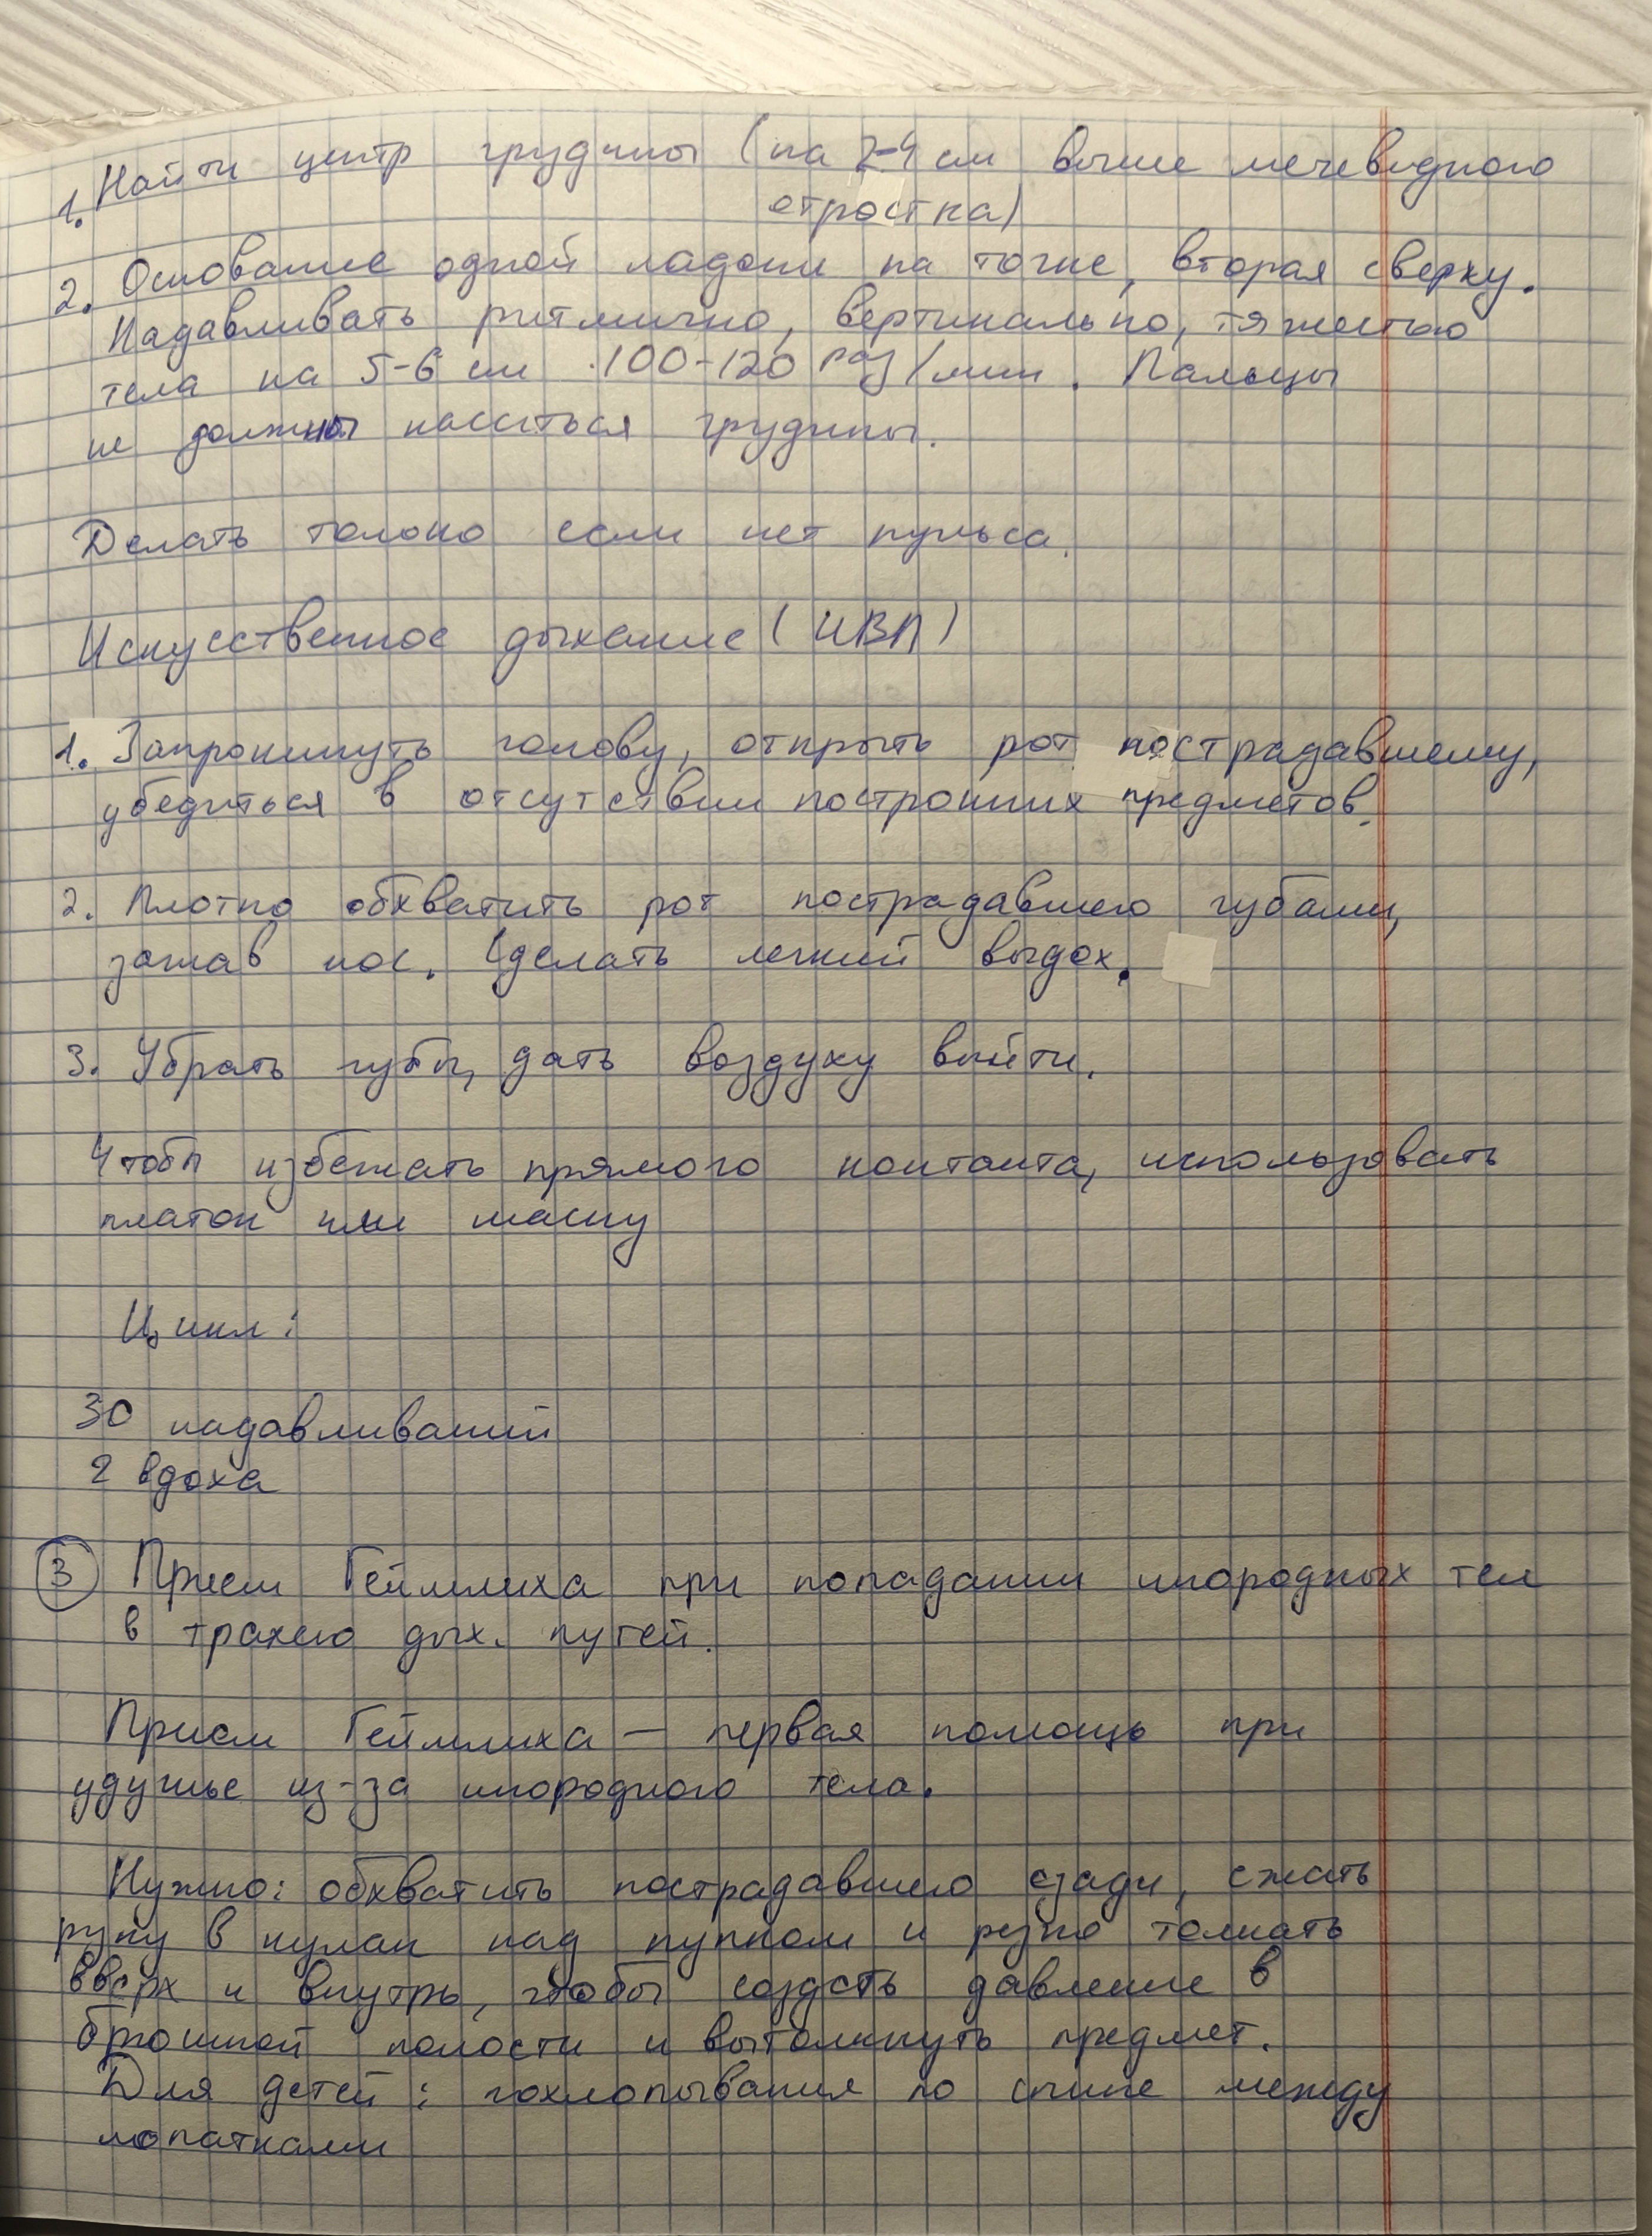 1. Найти центр грудины (на 2-4 см выше мечевидного
отростка)
2. Основание одной ладони на точке, вторая сверху.
Надавливать ритмично, вертикально, тяжестью
тела на 5-6 см 100-120 раз/мин. Пальцы
не должны касаться грудины.
Делать только если нет пульса.
Искусственное дыхание (ИВЛ)
1. Запрокинуть голову, открыть рот пострадавшему,
убедиться в отсутствии постронних предметов.
2. Плотно обхватить рот пострадавшего губами,
зажав нос. Сделать легкий выдох.
3. Убрать губы, дать воздуху выйти.
Чтобы избежать прямого контакта, использовать
платок или маску
Цикл:
30 надавливаний
2 вдоха
3 Прием Геймлиха при попадании инородных тел
в трахею дых. путей.
Прием Геймлиха – первая помощь при
удушье из-за инородного тела.
Нужно: обхватить пострадавшего сзади, сжать
руку в кулак над пупком и резко толкать
вверх и внутрь, чтобы создать давление в
брюшной полости и вытолкнуть предмет.
Для детей: похлопывания по спине между
лопатками